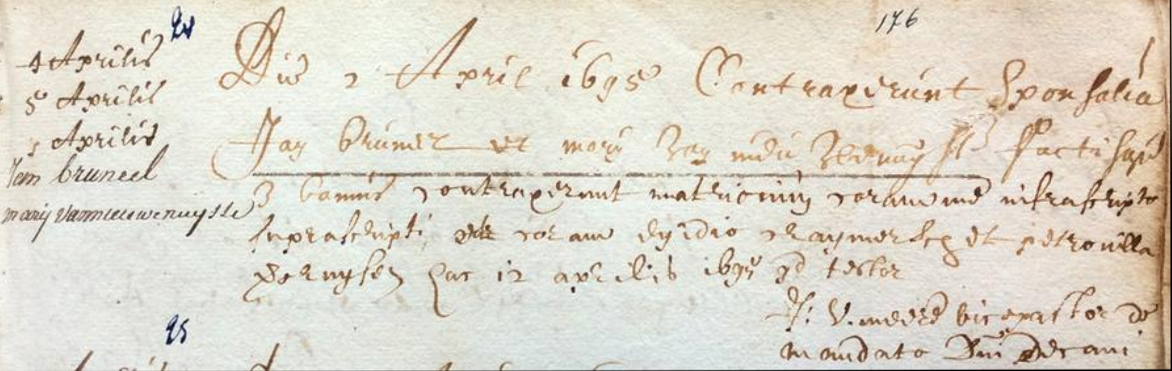 24
176
4 Aprilis
5 Aprilis
Aprilis
Jem bruneel
marij vannieuwenuysse
Die 2 April 1695 Contraxerunt Sponsalia
Jan brunel et mary Van factis
3 bannis contraxerunt matrimonium coram me infrascripto
suprascripti coram egidio et petronilla
hac 12 aprilis 1695 qd testor
J: V. meere vicepastor de
mandato Dni decani
25